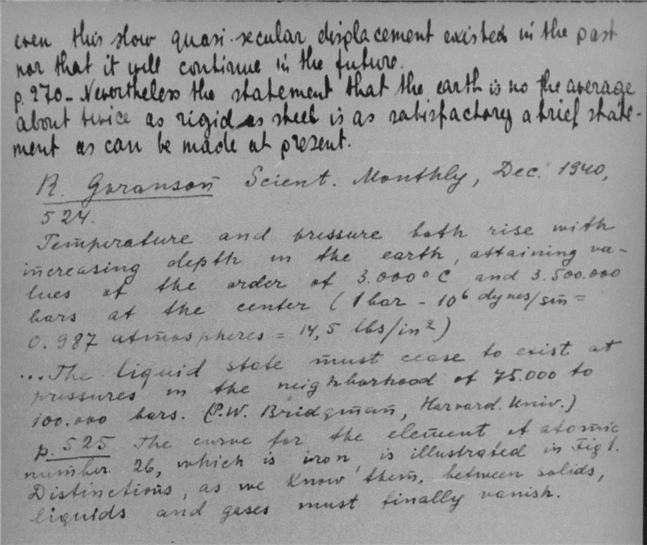 even this slow quasi-secular displacement existed in the past
nor that it will continue in the future.
p. 270 - Nevertheless the statement that the earth is no the average
about twice as rigid as steel is as satisfactory a brief state-
ment as can be made at present.
R. Goranson Scient. Monthly, Dec. 1940,
524.
Temperature and pressure both rise with
increasing depth in the earth, attaining va-
lues of the order of 3.000° C and 3.500.000
bars at the center (1 bar - 10⁶ dynes/sm =
0.987 atmospheres = 14,5 lbs/in²)
...The liquid state must cease to exist at
pressures in the neighborhood of 75.000 to
100.000 bars. (P.W. Bridgman, Harvard. Univ.)
p. 525 The curve for the element of atomic
number 26, which is iron, is illustrated in Fig 1.
Distinctions, as we know them, between solids,
liquids and gases must finally vanish.